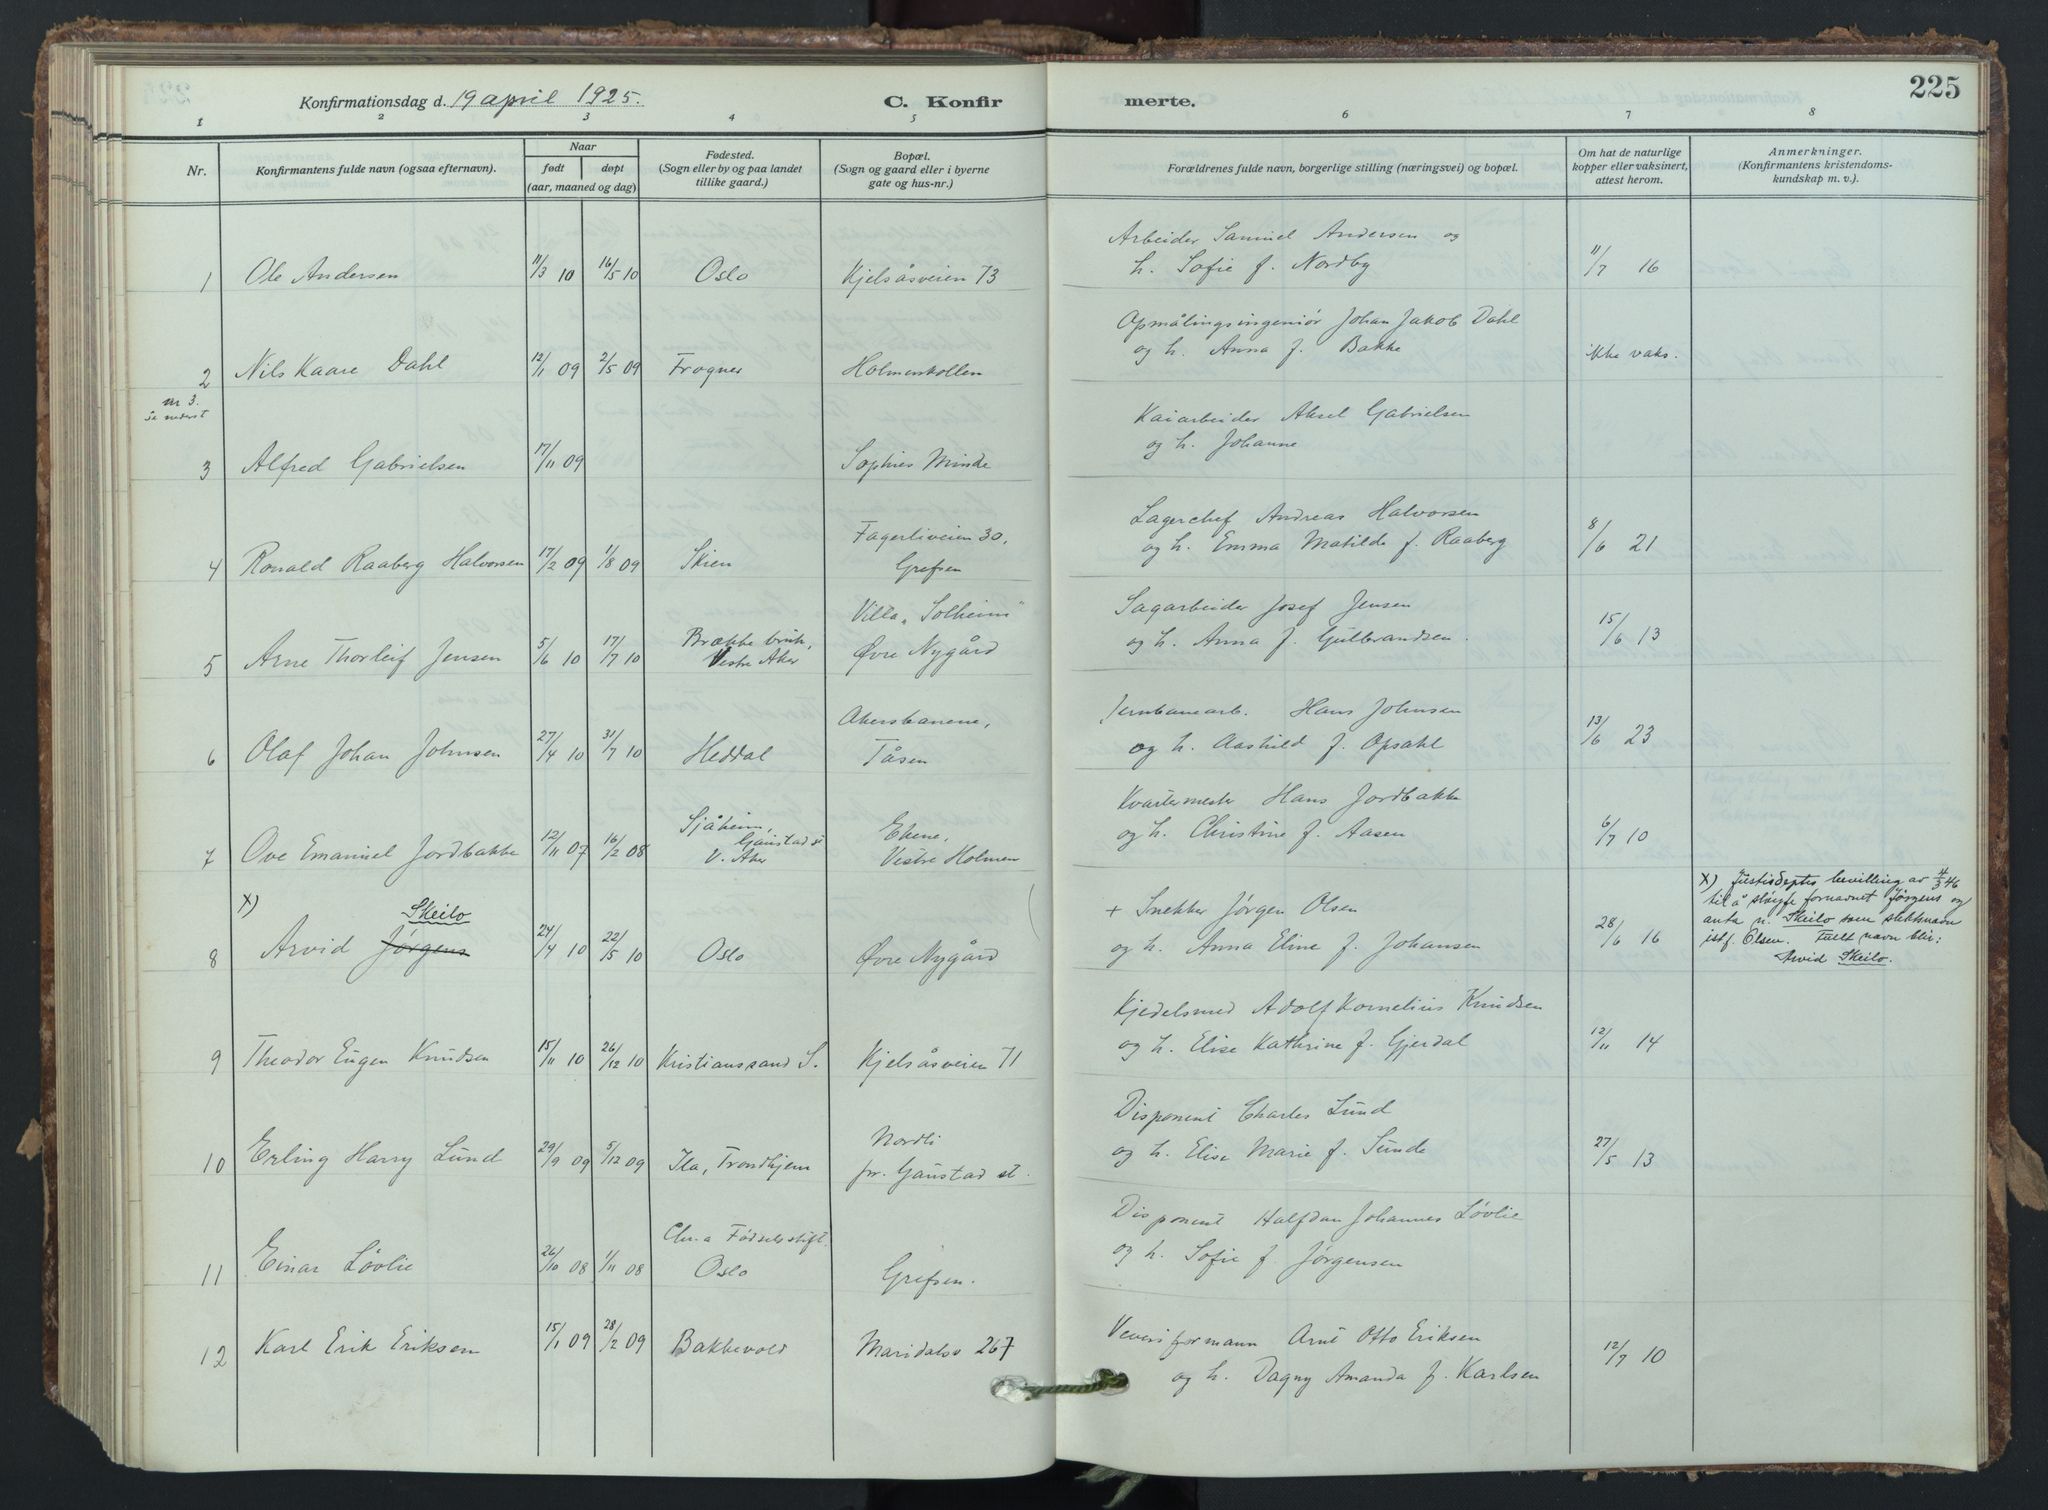 225
Konfirmationsdag d. 19 april 1925. C. Konfirmerte.
1 2 3 4 5 6 7 8
Nr.
Konfirmantens fulde navn (ogsaa efternavn).
Naar
født døpt
(aar, maaned og dag)
Fødested.
(Sogn eller by og paa landet
tillike gaard.)
Bopæl.
(Sogn og gaard eller i byerne
gate og hus-nr.)
Forældrenes fulde navn, borgerlige stilling (næringsvei) og bopæl.
Om hat de naturlige
kopper eller vaksinert,
attest herom.
Anmerkninger.
(Konfirmantens kristendoms-
kundskap m. v.).
Arbeider Samuel Andersen og
1 Ole Andersen 11/3 10 16/5 10 Oslo Kjelsåsveien 73 h. Sofie f. Nordby 11/7 16
Opmålingsingeniør Johan Jakob Dahl
2 Nils Kaare Dahl 12/1 09 2/5 09 Frogner Holmenkollen og h. Anna f. Bakke ikke vaks.
nr 3.
se nederst
Kaiarbeider Aksel Gabrielsen
3 Alfred Gabrielsen 17/11 09 Sophies Minde og h. Johanne
Fagerliveien 30, Lagerchef Andreas Halvorsen
4 Ronald Raaberg Halvorsen 17/2 09 1/8 09 Skien Grefsen og h. Emma Matilde f. Raaberg 8/6 21
Villa „Solheim" Sagarbeider Josef Jensen
5 Arne Thorleif Jensen 5/6 10 17/7 10 Brække bruk, Vestre Aker Øvre Nygård og h. Anna f. Gulbrandsen. 15/6 13
Akersbanene, Jernbanearb. Hans Johnsen
6 Olaf Johan Johnsen 27/4 10 31/7 10 Heddal Tåsen og h. Aashild f. Opsahl 13/6 23
Sjåheim, Gaustad st V. Aker Ekene, Kvartermester Hans Jordbakke
7 Ove Emanuel Jordbakke 12/11 07 16/2 08 Vestre Holmen og h. Christine f. Aasen 6/7 10
X) Skeilo + Snekker Jørgen Olsen
8 Arvid Jørgens 24/4 10 22/5 10 Oslo Øvre Nygård og h. Anna Eline f. Johansen 28/6 16
X) Justisdeptes bevilling av 4/3 46
til å sløyfe fornavnet Jørgens og
anta n. Skeilo som slektsnavn
istf. Olsen. Fullt navn blir:
Arvid Skeilo.
Kjedelsmed Adolf Kornelius Knudsen
9 Theodor Eugen Knudsen 15/11 10 26/12 10 Kristianssand S. Kjelsåsveien 71 og h. Elise Kathrine f. Gjerdal 12/11 14
Nordli Disponent Charles Lund
10 Erling Harry Lund 29/9 09 5/12 09 Ila, Trondhjem pr. Gaustad st. og h. Elise Marie f. Sunde 27/5 13
Chr.a Fødselsstift. Disponent Halfdan Johannes Løvlie
11 Einar Løvlie 26/10 08 1/11 08 Oslo Grefsen. og h. Sofie f. Jørgensen
Veveriformann Arnt Otto Eriksen
12 Karl Erik Eriksen 15/1 09 28/2 09 Bakkevold Maridalsv 267 og h. Dagny Amanda f. Karlsen 12/7 10